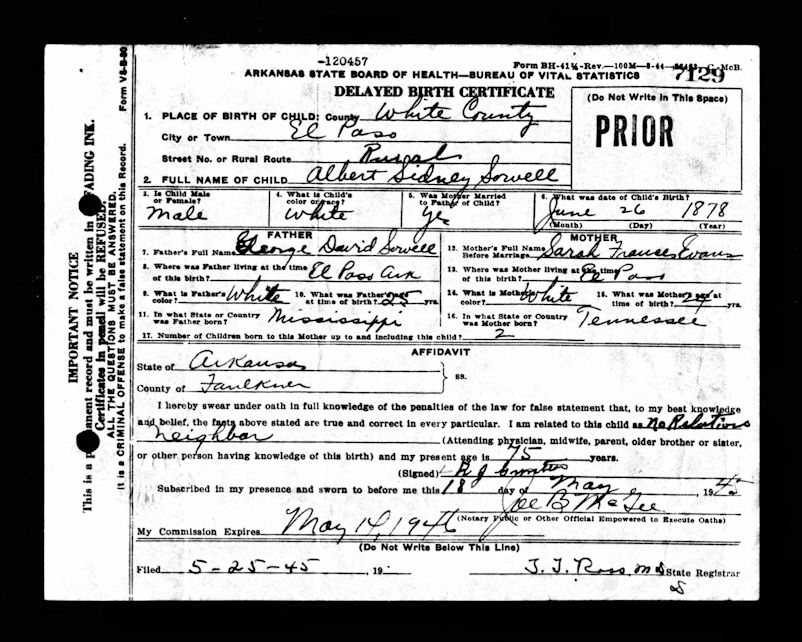 -120457
Form BH-41½-Rev.-100M-8-44 G-McB.
ARKANSAS STATE BOARD OF HEALTH—BUREAU OF VITAL STATISTICS
7129
DELAYED BIRTH CERTIFICATE
(Do Not Write In This Space)
PRIOR
1. PLACE OF BIRTH OF CHILD: County White County
City or Town El Paso
Street No. or Rural Route Rural
2. FULL NAME OF CHILD Albert Sidney Sowell
3. Is Child Male or Female? Male
4. What is Child's color or race? White
5. Was Mother Married to Father of Child? Yes
6. What was date of Child's Birth? June 26 1878
(Month) (Day) (Year)
FATHER
7. Father's Full Name George David Sowell
8. Where was Father living at the time of this birth? El Paso Ark
9. What is Father's color? White 10. What was Father's age at time of birth? 25 yrs.
11. In what State or Country was Father born? Mississippi
MOTHER
12. Mother's Full Name Before Marriage Sarah Frances Evans
13. Where was Mother living at the time of this birth? El Paso
14. What is Mother's color? White 15. What was Mother's age at time of birth? 24 yrs.
16. In what State or Country was Mother born? Tennessee
17. Number of Children born to this Mother up to and including this child? 2
AFFIDAVIT
State of Arkansas
County of Faulkner
ss.
I hereby swear under oath in full knowledge of the penalties of the law for false statement that, to my best knowledge
and belief, the facts above stated are true and correct in every particular. I am related to this child as no Relations
neighbor (Attending physician, midwife, parent, older brother or sister,
or other person having knowledge of this birth) and my present age is 75 years.
(Signed)
Subscribed in my presence and sworn to before me this 18 day of May, 1945
Joe B McGee
(Notary Public or Other Official Empowered to Execute Oaths)
My Commission Expires May 14, 1946
(Do Not Write Below This Line)
Filed 5-25-45, 19
T. T. Ross, MD State Registrar
Form VS-B-30
IMPORTANT NOTICE
This is a permanent record and must be written in UNFADING INK.
Certificates in pencil will be REFUSED.
ALL THE QUESTIONS MUST BE ANSWERED.
It is a CRIMINAL OFFENSE to make a false statement on this Record.